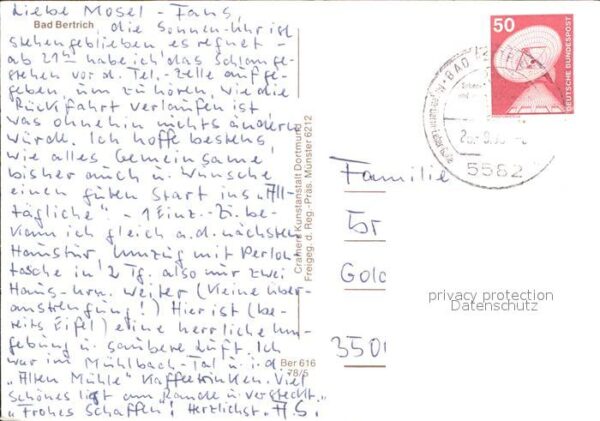 Liebe Mosel-Fans,
Bad Bertrich
die Sonnen-Uhr ist
stehengeblieben es regnet -
ab 21ʰʰ habe ich das Schlange-
stehen vor d. Tel.-Zelle aufge-
geben, um zu hören, wie die
Rückfahrt verlaufen ist,
was ohnehin nichts ändern
würde. Ich hoffe bestens,
wie alles Gemeinsame
bisher auch u. wünsche
einen guten Start ins "All-
tägliche". - 1 Einz.-Zi. be-
kam ich gleich a.d. nächsten
Haustür Umzug mit Perlon-
tasche in 2 Tg. also nur zwei
Haus-nrn. weiter (kleine Über-
anstrengung!) Hier ist (be-
reits Eifel) eine herrliche Um-
gebung u. saubere Luft. Ich
war im Mühlbach-Tal u. i.d.
"Alten Mühle" Kaffeetrinken. Viel
schönes liegt am Rande u. versteckt.
"Frohes Schaffen"! Herzlichst A.S.
Ber 616
78/5
Cramers Kunstanstalt Dortmund
Freigeg. d. Reg.-Präs. Münster 6212
50
DEUTSCHE BUNDESPOST
BAD
5582
Familie
Gold
3501
privacy protection
Datenschutz